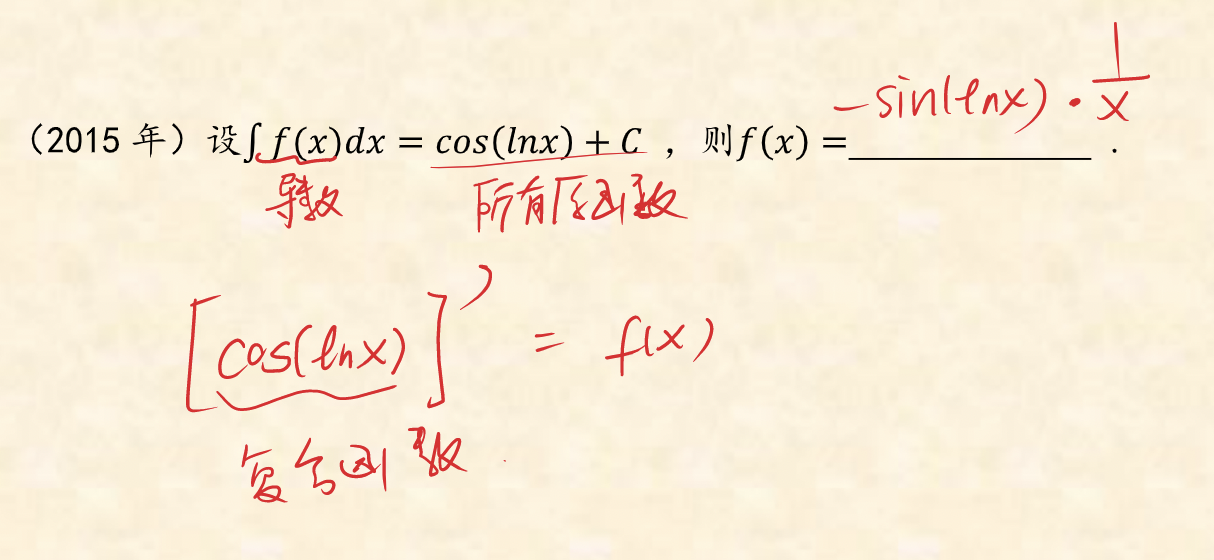 -sin(lnx)·1/x
（2015 年）设∫f(x)dx = cos(lnx) + C ，则f(x) =____________ .
导数 所有原函数
[cos(lnx)]′ = f(x)
复合函数